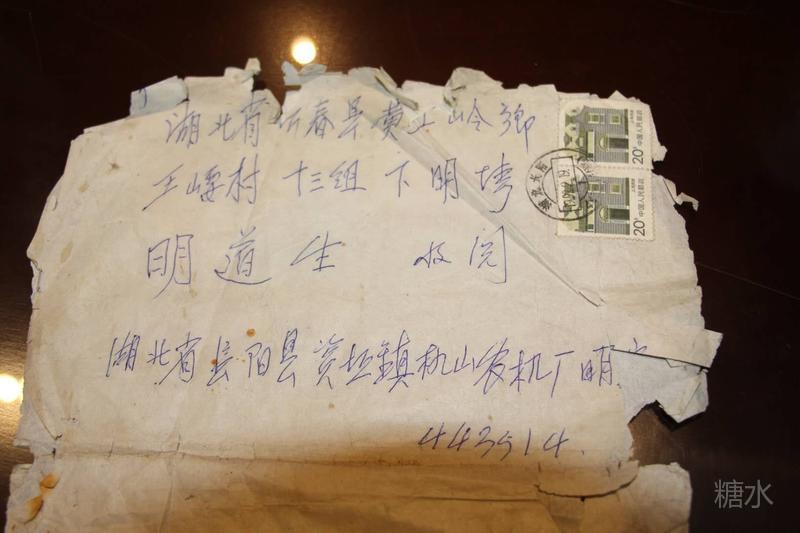 湖北省蕲春县黄土岭乡
王崾村 十三组 下明塆
明道生 收阅
湖北省长阳县资坵镇机山农机厂明
443514.
20分 中国人民邮政
20分 中国人民邮政
糖水